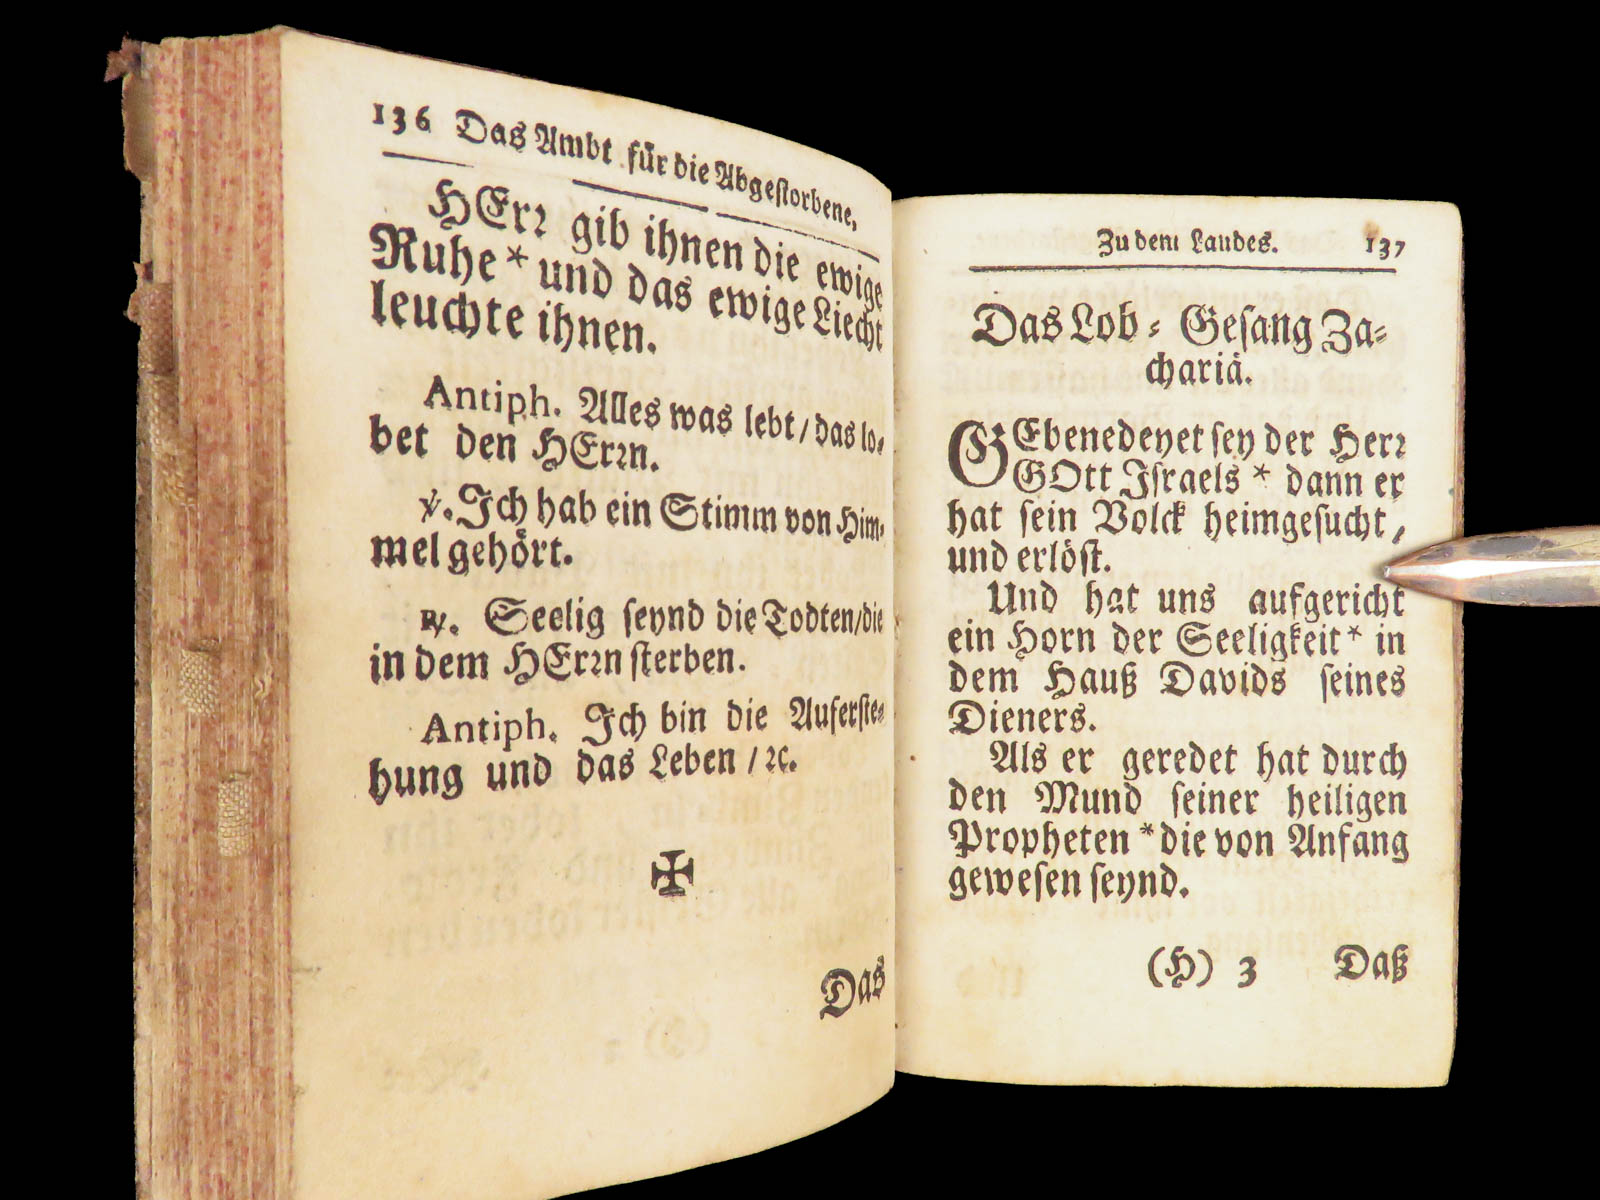 136 Das Ambt für die Abgestorbene,
HErꝛ gib ihnen die ewige
Ruhe * und das ewige Liecht
leuchte ihnen.
Antiph. Alles was lebt / das lo⸗
bet den HErꝛn.
℣. Ich hab ein Stimm von Him⸗
mel gehört.
℟. Seelig seynd die Todten / die
in dem HErꝛn sterben.
Antiph. Ich bin die Auferste⸗
hung und das Leben / ꝛc.
✠
Das
Zu dem Laudes. 137
Das Lob⸗Gesang Za⸗
chariä.
GEbenedeyet sey der Herꝛ
GOtt Israels * dann er
hat sein Volck heimgesucht,
und erlöst.
Und hat uns aufgericht
ein Horn der Seeligkeit * in
dem Hauß Davids seines
Dieners.
Als er geredet hat durch
den Mund seiner heiligen
Propheten * die von Anfang
gewesen seynd.
(H) 3 Daß